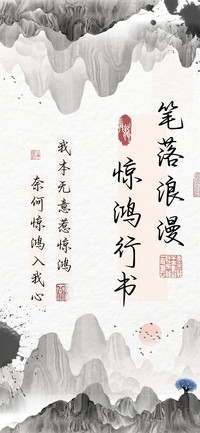 笔落浪漫
惊鸿行书
我本无意惹惊鸿
奈何惊鸿入我心